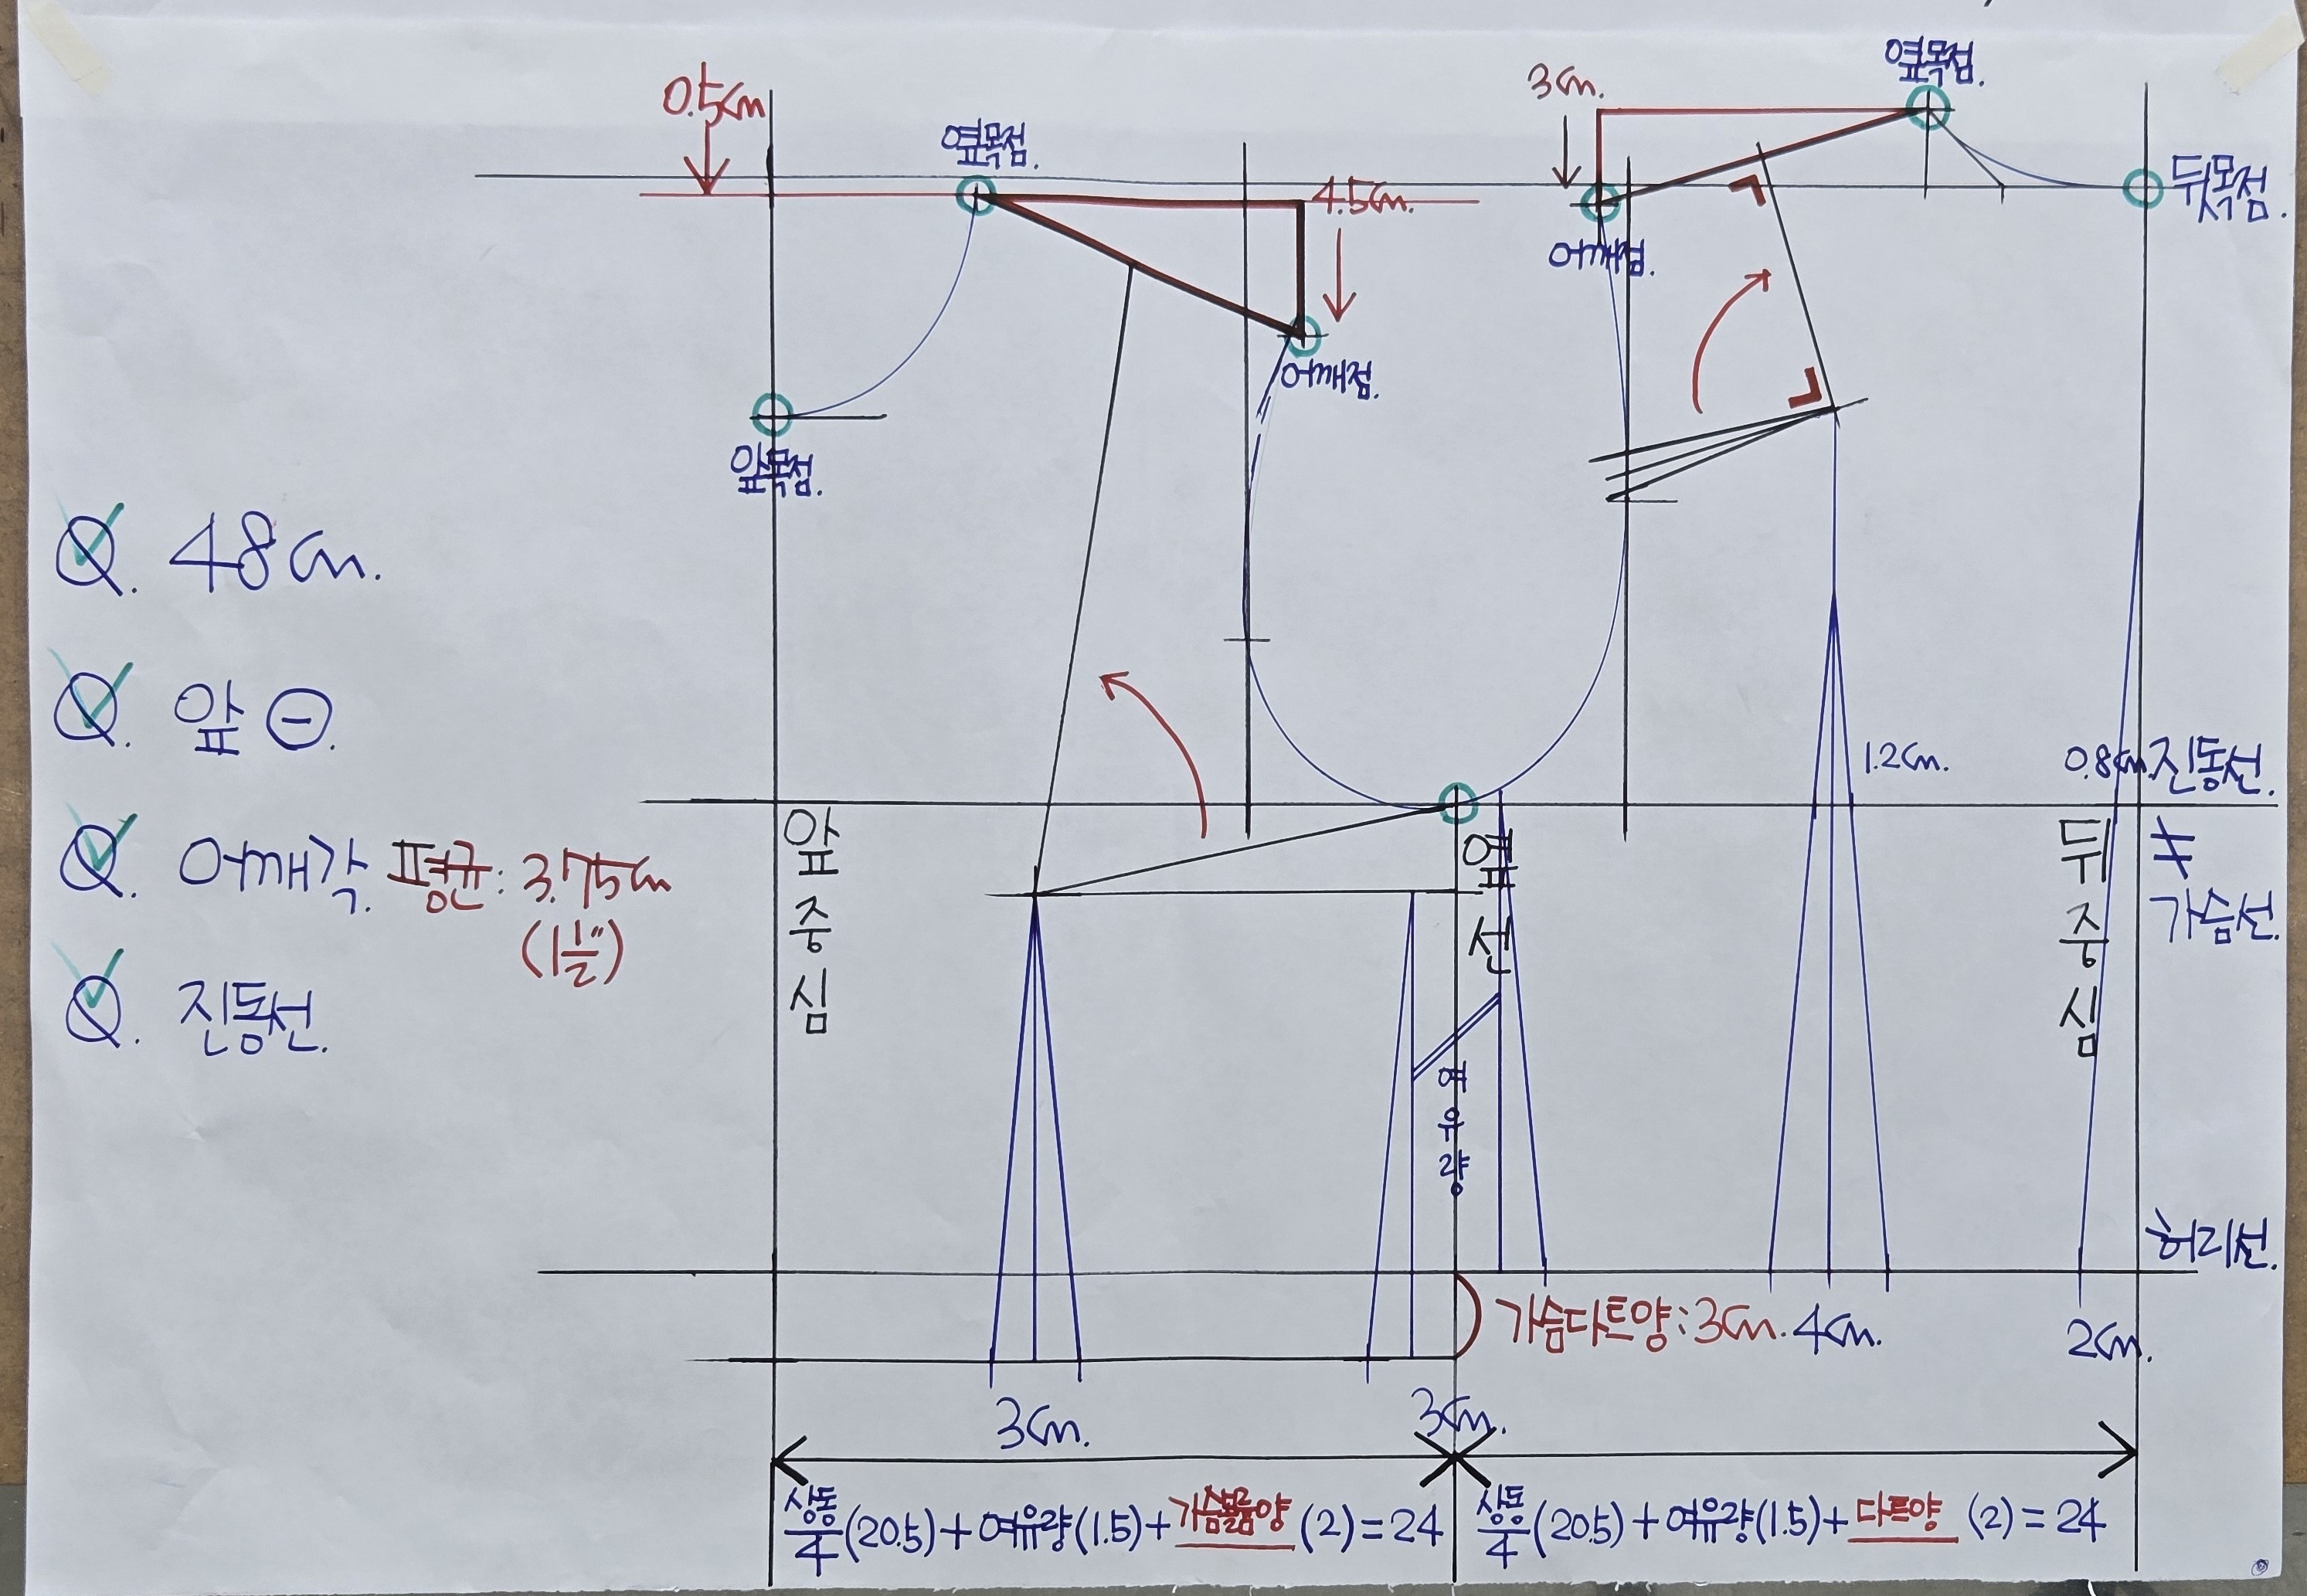 0.5cm
옆목점.
3cm.
옆목점.
4.5cm.
뒤목점.
어깨점.
어깨점.
앞목점.
Q. 48cm.
Q. 앞 ⊖.
Q. 어깨각. 평균: 3.75cm
(1 1/2")
Q. 진동선.
1.2cm.
0.8cm.
진동선.
≠
가슴선.
앞중심
옆선
뒤중심
여유량
허리선.
가슴다트양: 3cm.
4cm.
2cm.
3cm.
3cm.
상동/4 (20.5) + 여유량(1.5) + 가슴볼륨양 (2) = 24
상동/4 (20.5) + 여유량(1.5) + 다트양 (2) = 24